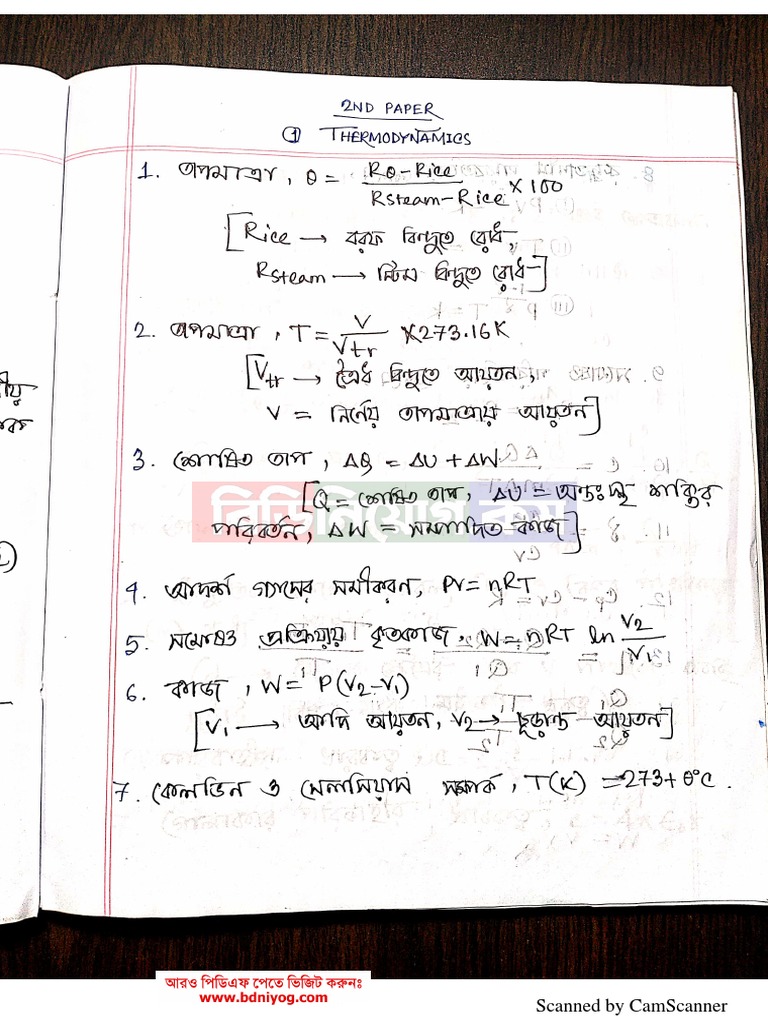 2ND PAPER
① THERMODYNAMICS
1. তাপমাত্রা, θ = (Rθ - Rice) / (Rsteam - Rice) × 100
[Rice → বরফ বিন্দুতে রোধ,
Rsteam → স্টিম বিন্দুতে রোধ]
2. তাপমাত্রা, T = V / Vtr × 273.16K
[Vtr → ত্রৈধ বিন্দুতে আয়তন,
V = নির্ণেয় তাপমাত্রায় আয়তন]
3. শোষিত তাপ, ΔQ = ΔU + ΔW
[Q = শোষিত তাপ, ΔU = অন্তঃস্থ শক্তির
পরিবর্তন, ΔW = সম্পাদিত কাজ]
বিডিনিয়োগ কম
4. আদর্শ গ্যাসের সমীকরণ, PV = nRT
5. সমোষ্ণ প্রক্রিয়ায় কৃতকাজ, W = nRT ln V2/V1
6. কাজ, W = P(V2-V1)
[V1 → আদি আয়তন, V2 → চূড়ান্ত আয়তন]
7. কেলভিন ও সেলসিয়াস সম্পর্ক, T(K) = 273 + θ°C.
আরও পিডিএফ পেতে ভিজিট করুনঃ
www.bdniyog.com
Scanned by CamScanner